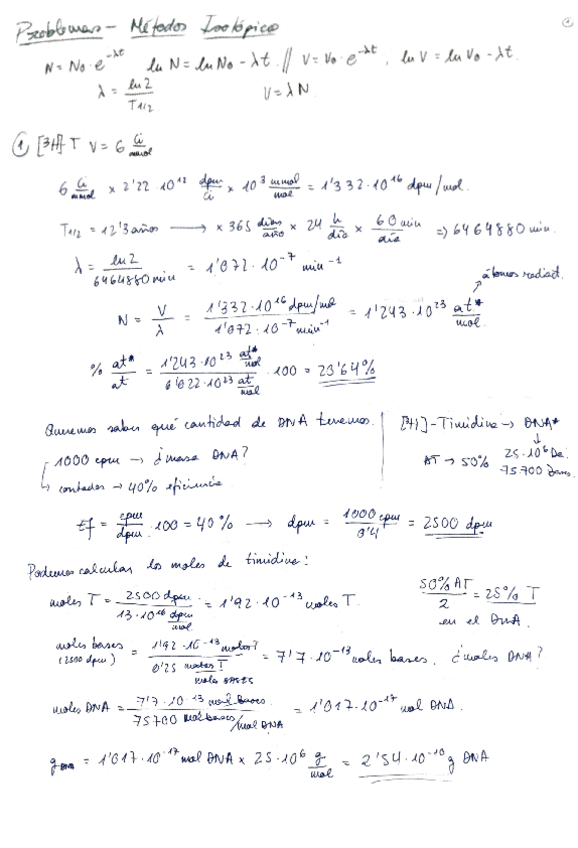 Problemas - Métodos Isotópicos
N = No · e^-λt   ln N = ln No - λt. // V = Vo · e^-λt, ln V = ln Vo - λt.
λ = ln 2 / T1/2   V = λ N
① [3H] T V = 6 Ci/mmol
6 Ci/mmol × 2'22 · 10^12 dpm/Ci × 10^3 mmol/mol = 1'332 · 10^16 dpm/mol.
T1/2 = 12'3 años → × 365 días/año × 24 h/día × 60 min/día ⇒ 6464880 min.
λ = ln 2 / 6464880 min = 1'072 · 10^-7 min^-1
átomos radiact.
N = V/λ = 1'332 · 10^16 dpm/mol / 1'072 · 10^-7 min^-1 = 1'243 · 10^23 at*/mol.
% at*/at = 1'243 · 10^23 at*/mol / 6'022 · 10^23 at/mol · 100 = 20'64%
Queremos saber qué cantidad de DNA tenemos.
1000 cpm → ¿masa DNA?
↳ contador → 40% eficiencia
[3H]-Timidina → DNA*
AT → 50%   25 · 10^6 Da.
75700 bases.
Ef = cpm/dpm · 100 = 40% → dpm = 1000 cpm / 0'4 = 2500 dpm
Podemos calcular los moles de timidina:
moles T = 2500 dpm / 1'3 · 10^16 dpm/mol = 1'92 · 10^-13 moles T.
50% AT / 2 = 25% T
en el DNA.
moles bases (2500 dpm) = 1'92 · 10^-13 moles T / 0'25 moles T/moles bases = 7'7 · 10^-13 moles bases. ¿moles DNA?
moles DNA = 7'7 · 10^-13 mol bases / 75700 mol bases/mol DNA = 1'017 · 10^-17 mol DNA.
g DNA = 1'017 · 10^-17 mol DNA × 25 · 10^6 g/mol = 2'54 · 10^-10 g DNA